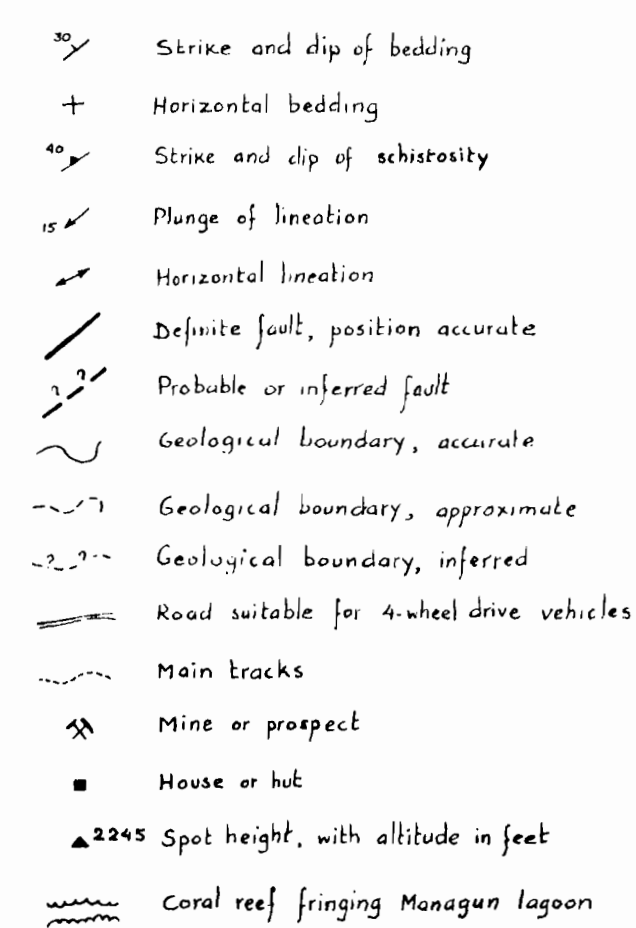 30 Strike and dip of bedding
Horizontal bedding
40 Strike and dip of schistosity
15 Plunge of lineation
Horizontal lineation
Definite fault, position accurate
? ? Probable or inferred fault
Geological boundary, accurate
Geological boundary, approximate
? ? Geological boundary, inferred
Road suitable for 4-wheel drive vehicles
Main tracks
Mine or prospect
House or hut
2245 Spot height, with altitude in feet
Coral reef fringing Managun lagoon